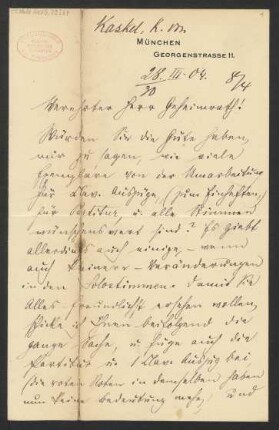 Kaskel, K. von
MÜNCHEN
GEORGENSTRASSE 11.
28. III. 04. 8/4
30
Verehrter Herr Geheimrath!
Würden Sie die Güte haben,
mir zu sagen, wie viele
Exemplare von der Umarbeitung
für Clav. Auszüge (zum Einheften,
für Partitur, u. alle Stimmen
wünschenswert sind? Es giebt
allerdings auch einige, – wenn
auch kleinere – Veränderungen
in den Solostimmen. Damit Sie
Alles freundlichst ersehen wollen,
schicke ich Ihnen beifolgend die
ganze Sache, u. füge auch die
Partitur u. 1 Clav. Auszug bei
(die roten Noten in demselben haben
nun keine Bedeutung mehr, und